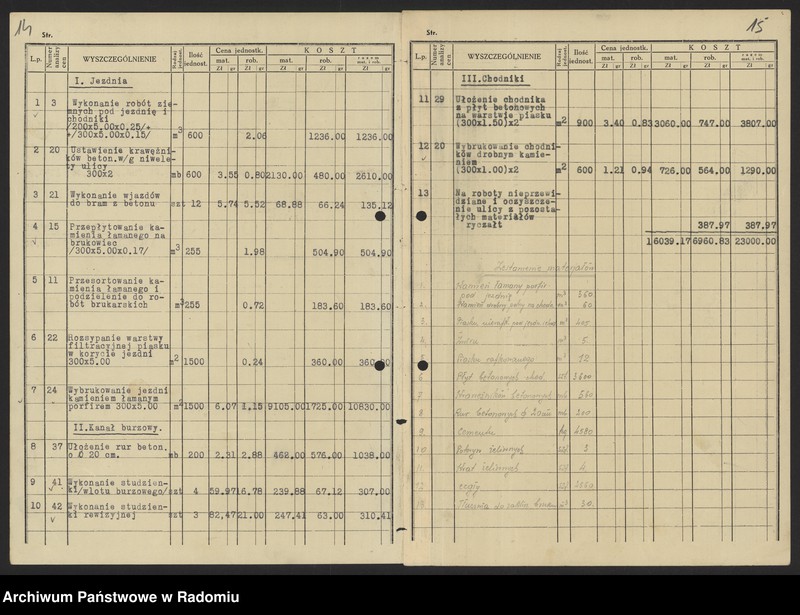 14
Str.
L.p. Numer analizy cen WYSZCZEGÓLNIENIE Rodzaj jednost. Ilość jednost. Cena jednostk. KOSZT
mat. rob. mat. rob. razem mat. i rob.
Zł gr Zł gr Zł gr Zł gr Zł gr
I. Jezdnia
1 3 Wykonanie robót zie-
mnych pod jezdnię i
chodniki
/200x5.00x0.25/+
+/300x5.00x0.15/ m3 600 2.06 1236.00 1236.00
2 20 Ustawienie krawężni-
ków beton.w/g niwele-
ty ulicy
300x2 mb 600 3.55 0.80 2130.00 480.00 2610.00
3 21 Wykonanie wjazdów
do bram z betonu szt 12 5.74 5.52 68.88 66.24 135.12
4 15 Przepłytowanie ka-
mienia łamanego na
brukowiec
/300x5.00x0.17/ m3 255 1.98 504.90 504.90
5 11 Przesortowanie ka-
mienia łamanego i
podzielenie do ro-
bót brukarskich m3 255 0.72 183.60 183.60
6 22 Rozsypanie warstwy
filtracyjnej piasku
w korycie jezdni
300x5.00 m2 1500 0.24 360.00 360.00
7 24 Wybrukowanie jezdni
kamieniem łamanym
porfirem 300x5.00 m2 1500 6.07 1.15 9105.00 1725.00 10830.00
II.Kanał burzowy.
8 37 Ułożenie rur beton.
o Ø 20 cm. mb 200 2.31 2.88 462.00 576.00 1038.00
9 41 Wykonanie studzien-
ki/wlotu burzowego/ szt 4 59.97 16.78 239.88 67.12 307.00
10 42 Wykonanie studzien-
ki rewizyjnej szt 3 82,47 21.00 247.41 63.00 310.41
15
Str.
L.p. Numer analizy cen WYSZCZEGÓLNIENIE Rodzaj jednost. Ilość jednost. Cena jednostk. KOSZT
mat. rob. mat. rob. razem mat. i rob.
Zł gr Zł gr Zł gr Zł gr Zł gr
III.Chodniki
11 29 Ułożenie chodnika
z płyt betonowych
na warstwie piasku
(300x1.50)x2 m2 900 3.40 0.83 3060.00 747.00 3807.00
12 20 Wybrukowanie chodni-
ków drobnym kamie-
niem
(300x1.00)x2 m2 600 1.21 0.94 726.00 564.00 1290.00
13 Na roboty nieprzewi-
dziane i oczyszcze-
nie ulicy z pozosta-
łych materiałów
ryczałt 387.97 387.97
16039.17 6960.83 23000.00
Zestawienie materiałów
Kamień łamany porfir.
pod jezdnię m3
2. Kamień m3 60
3. Piasku m3 400
4. m3 5
5 Piasku m3 12
6 Płyt betonowych chod. szt 3600
7 Krawężników betonowych mb
8 Rur betonowych Ø 20cm mb 200
9 Cementu kg
10 żeliwnych szt 3
11. Krat żeliwnych szt 4
12 cegły szt
13 30.
Archiwum Państwowe w Radomiu